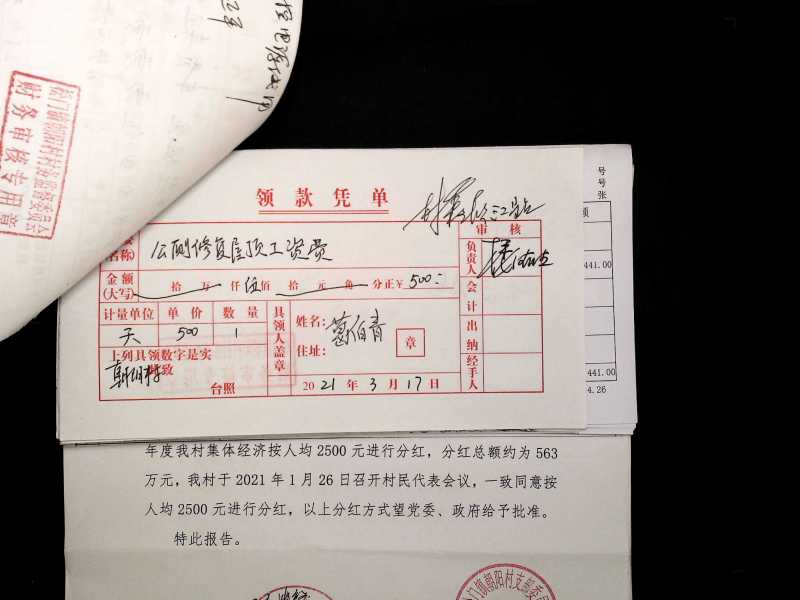 财务审核专用章
领款凭单
名称)
公厕修复屋顶工资费
审核
负责人
金额
(大写)
拾 万 仟 伍 佰 拾 元 角 分正¥ 500
会计
计量单位 单价 数量
天 500 1
具领人盖章
姓名: 葛伯青
住址:
章
出纳
经手人
上列具领数字是实
此致
台照
2021年3月17日
号
号
张
额
441.00
441.00
4.26
年度我村集体经济按人均2500元进行分红，分红总额约为563
万元，我村于2021年1月26日召开村民代表会议，一致同意按
人均2500元进行分红，以上分红方式望党委、政府给予批准。
特此报告。
门镇朝阳村支部委员